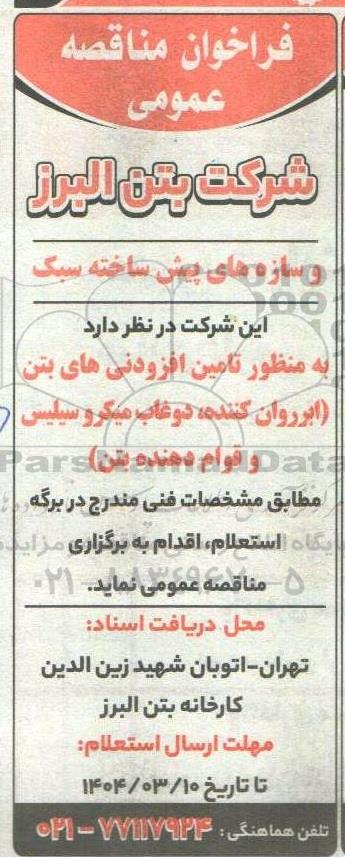 فراخوان مناقصه
عمومی
شرکت بتن البرز
و سازه های پیش ساخته سبک
این شرکت در نظر دارد
به منظور تامین افزودنی های بتن
(ابرروان کننده، دوغاب میکرو سیلیس
و قوام دهنده بتن)
مطابق مشخصات فنی مندرج در برگه
استعلام، اقدام به برگزاری
مناقصه عمومی نماید.
محل دریافت اسناد:
تهران-اتوبان شهید زین الدین
کارخانه بتن البرز
مهلت ارسال استعلام:
تا تاریخ ۱۴۰۴/۰۳/۱۰
تلفن هماهنگی: ۷۷۱۱۷۹۲۴ - ۰۲۱
ParsNamadData
۰۲۱-۸۸۳۴۹۶۷۰-۵